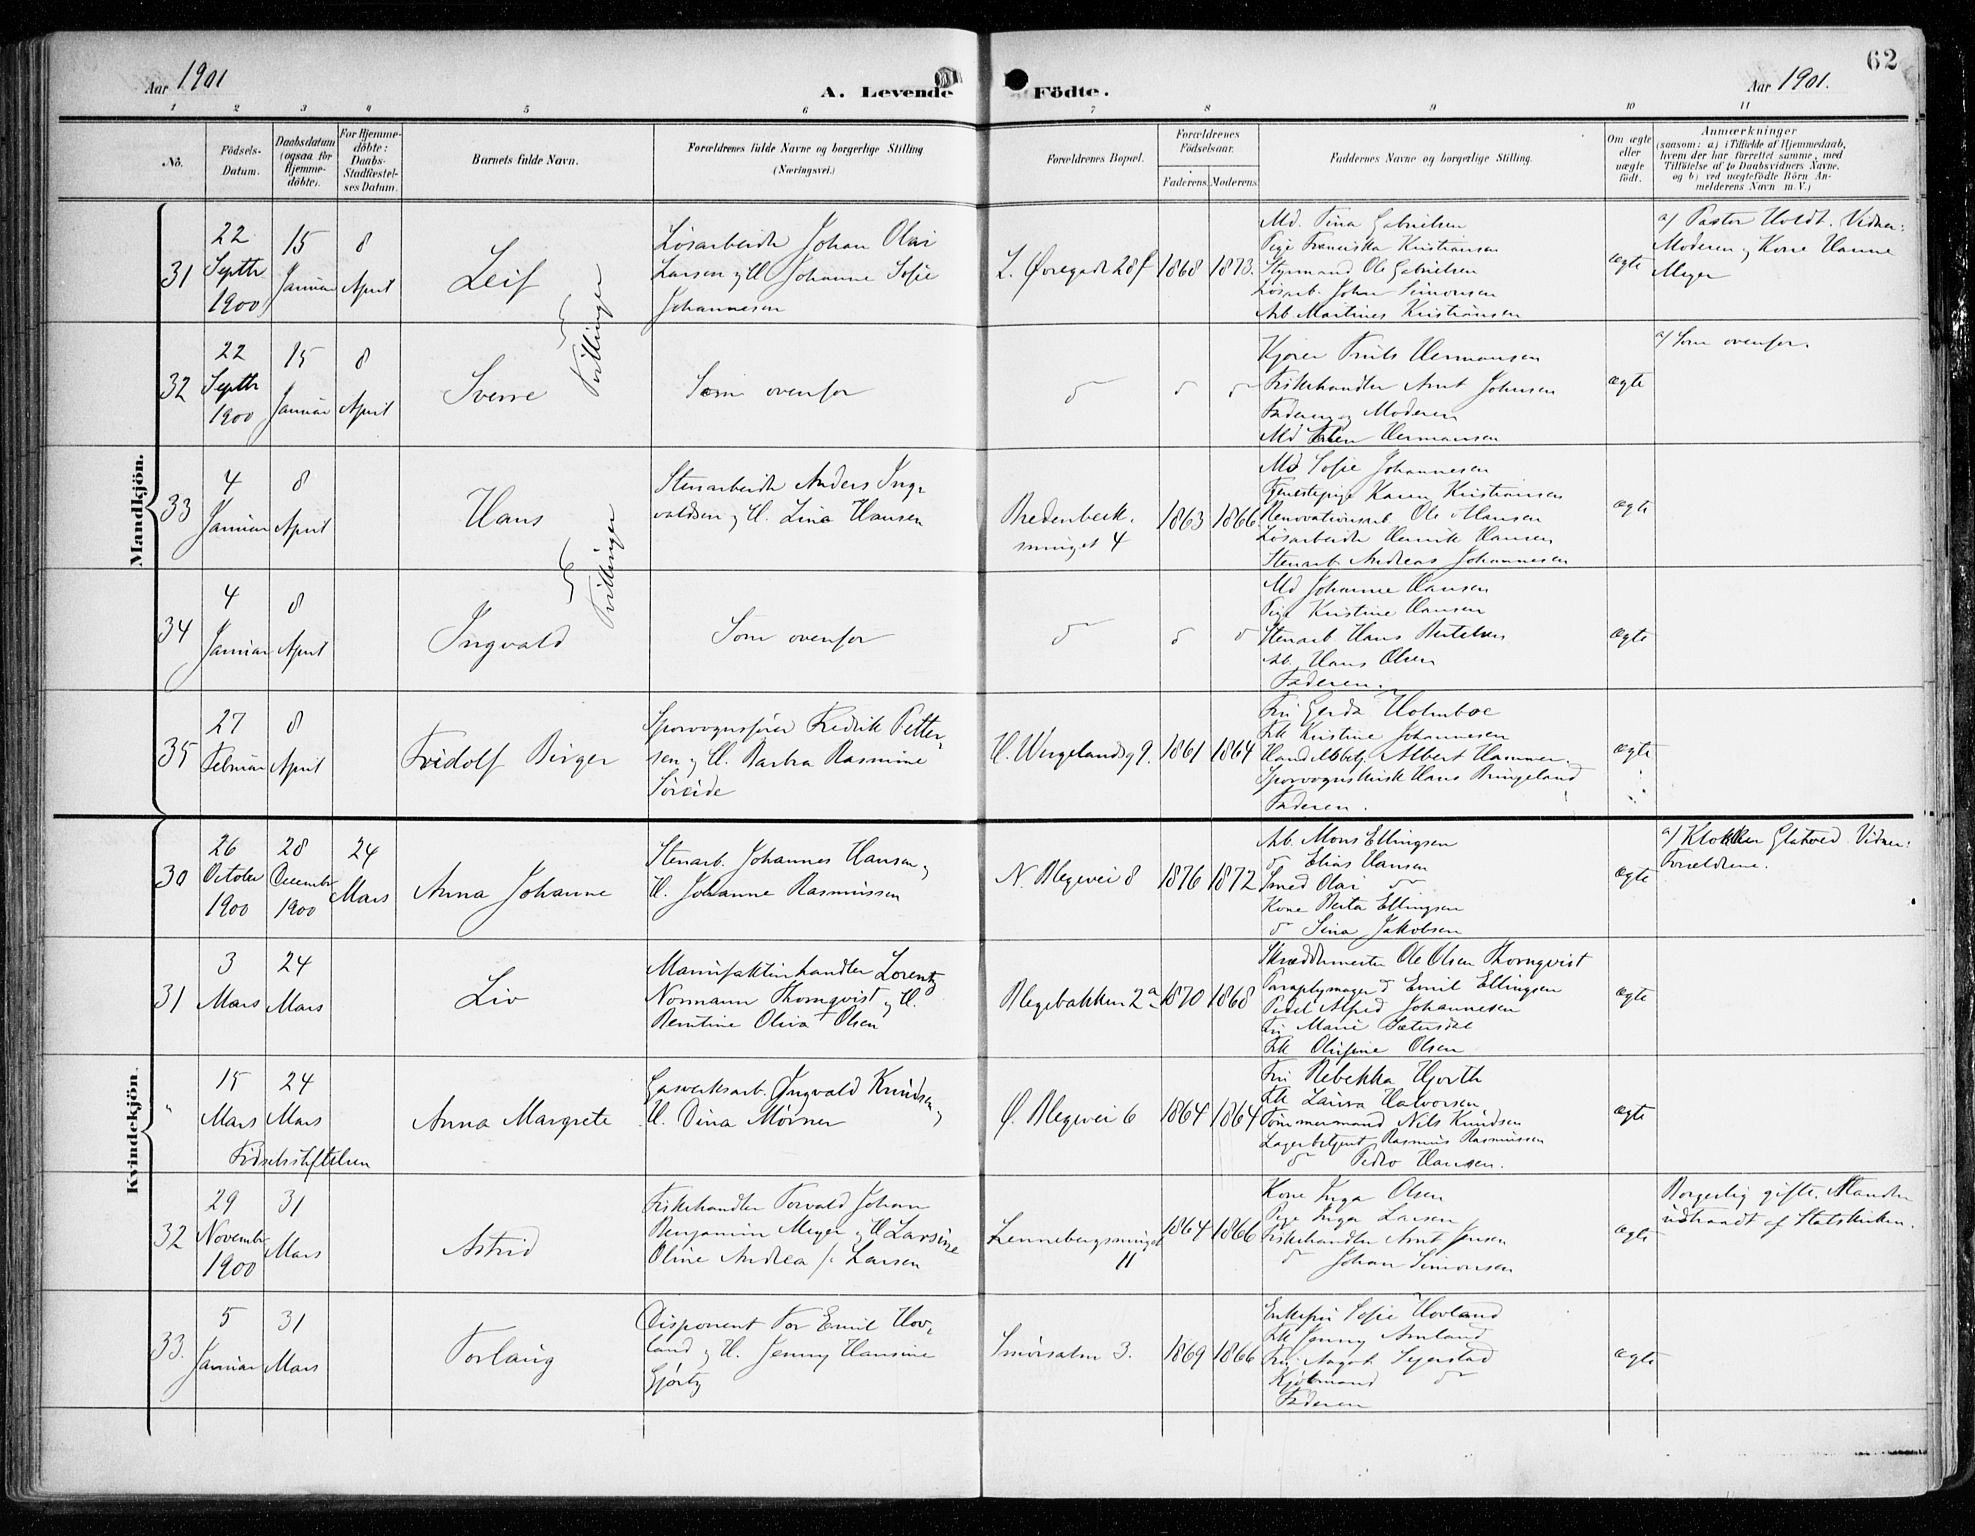 62
Aar 1901
A. Levende Födte.
Aar 1901.
1 2 3 4 5 6 7 8 9 10 11
No.
Födsels-Datum.
Daabsdatum (ogsaa for Hjemme-döbte).
For Hjemme-döbte: Daabs-Stadfæstel-ses Datum.
Barnets fulde Navn.
Forældrenes fulde Navne og borgerlige Stilling (Næringsvei.)
Forældrenes Bopæl.
Forældrenes Födselsaar.
Faderens. Moderens.
Faddernes Navne og borgerlige Stilling.
Om ægte eller uægte födt.
Anmærkninger
(saasom: a) i Tilfælde af Hjemmedaab, hvem der har forrettet samme, med Tilföielse af to Daabsvidners Navne. og b) ved uægtefödte Börn An-melderens Navn m.V.)
Mandkjön.
31
22 Septbr 1900
15 Januar
8 April
Leif
Tvillinger
Løsarbeidr Johan Olai
Larsen og H. Johanne Sofie
Johannesen
L. Øregade 28f
1868 1873.
Md. Tina Gabrielsen
Pige Franciska Kristiansen
Styrmand Ole Gabrielsen
Løsarb. Johan Simonsen
Arb Martines Kristiansen
ægte
a) Pastor Holdt. Vidner:
Moderen og Kone Hanne
Meyer
32
22 Septbr 1900
15 Januar
8 April
Sverre
Som ovenfor
Kjører Frits Hermansen
Fiskehandler Arnt Johnsen
Faderen og Moderen
Md Hermansen
ægte
a) Som ovenfor.
33
4 Januar
8 April
Hans
Tvillinger
Stenarbeidr Anders Ing-
valdsen og H. Lina Hansen
Bredenbeck-
smuget 4
1863 1866
Md Sofie Johannesen
Tjenestepige Karen Kristiansen
Renovationsarb Ole Hansen
Løsarbeidr Henrik Hansen
Stenarb. Andreas Johannesen
ægte
34
4 Januar
8 April
Ingvald
Som ovenfor
Md Johanne Hansen
Pige Kristine Hansen
Stenarb Hans Bertelsen
Arb. Hans Olsen
Faderen.
ægte
35
27 Februar
8 April
Fridolf Birger
Sporvognsfører Fredrik Petter-
sen og H. Barbra Rasmine
Søreide
H. Wergelandsg 9.
1861 1864
Fru Gerda Holmboe
Frk Kristine Johannesen
Handelsbetj. Albert Hammer
Sporvognskusk Hans Bringeland
Faderen.
ægte
Kvindekjön.
30
26 October 1900
28 Decembr 1900
24 Mars
Anna Johanne
Stenarb. Johannes Hansen og
H. Johanne Rasmussen
N. Blegevei 8
1876 1872
Arb. Mons Ellingsen
Elias Hansen
Smed Olai
Kone Berta Ellingsen
Sina Jakobsen
ægte
a) Klokker Glatved. Vidner:
Forældrene.
31
3 Mars
24 Mars
Liv
Manufakturhandler Lorentz
Normann Thornqvist og H.
Bentine Oliva Olsen
Blegebakken 2a
1870 1868
Skræddermester Ole Olsen Thornqvist
Paraplymager Emil Ellingsen
Pedel Alfred Johannesen
Fru Marie Sætersdal
Frk Olufine Olsen
ægte
"
15 Mars
24 Mars
Fødselsstiftelsen
Anna Margrete
Gasverksarb. Ingvald Knudsen og
H. Dina Mørner
Ø. Blegevei 6
1864 1864
Fru Rebekka Hjorth
Frk Laura Halvorsen
Tømmermand Nils Knudsen
Lagerbetjent Rasmus Rasmussen
Pedro Hansen.
ægte
32
29 Novembr 1900
31 Mars
Astrid
Fiskehandler Torvald Johan
Benjamin Meyer og H Larsine
Oline Andrea f. Larsen
Lennebergsmuget
11
1864 1866
Kone Inga Olsen
Pige Inga Larsen
Fiskehandler Arnt Jensen
Johan Simonsen
ægte
Borgerlig gifte. Manden
udtraadt af Statskirken.
33.
5 Januar
31 Mars
Torlaug
Disponent Tor Emil Hov-
land og H. Jenny Hansine
Gjørtz
Smörsalm 3.
1869 1866
Enkefru Sofie Hovland
Frk Jenny Amland
Fru Aagot Sejerstad
Kjøbmand
Faderen
ægte